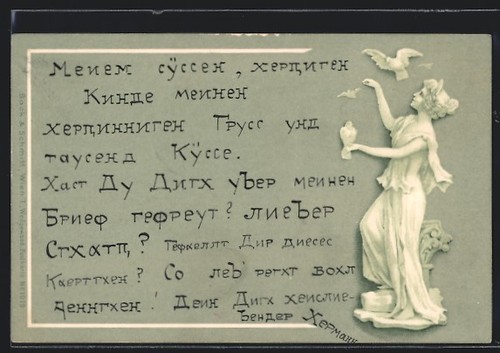 Меием сӱссен, херциген
Кинде меинен
херцинниген Грусс унд
таусенд Кӱссе.
Хаст Ду Дигх уЪер меинен
Бриеф гефреут? лиеЪер
Стхатп,? Гефкеллт Дир диесес
Каерттхен? Со леЪ регхт вохл
Деннгхен! Деин Дигх хеислие-
Ъендер Херманн